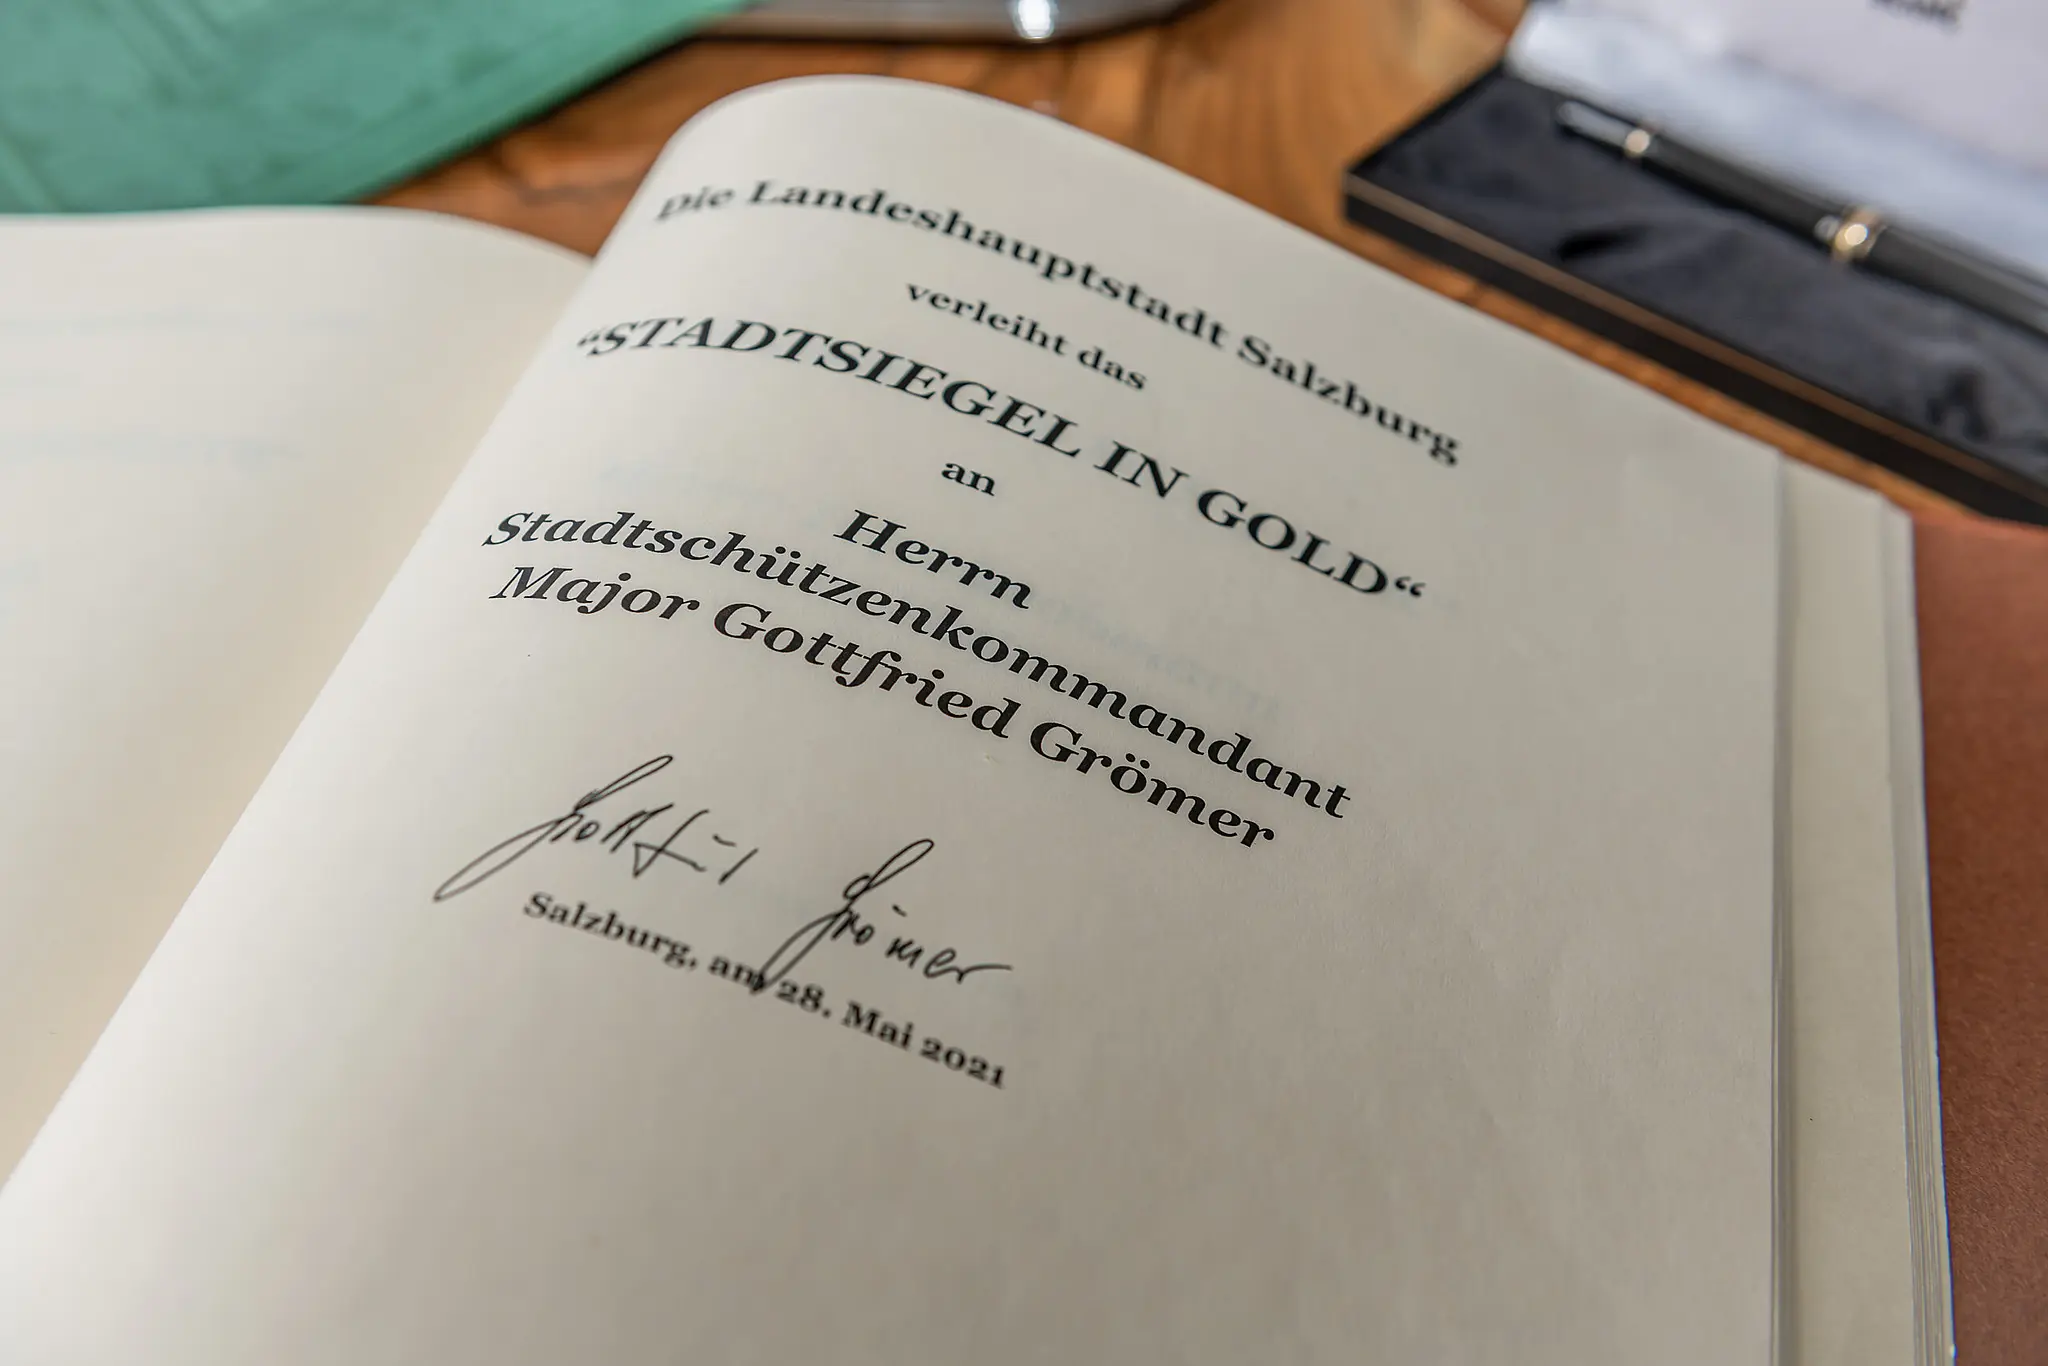 Die Landeshauptstadt Salzburg
verleiht das
“STADTSIEGEL IN GOLD“
an
Herrn
Stadtschützenkommandant
Major Gottfried Grömer
Gottfried Grömer
Salzburg, am 28. Mai 2021